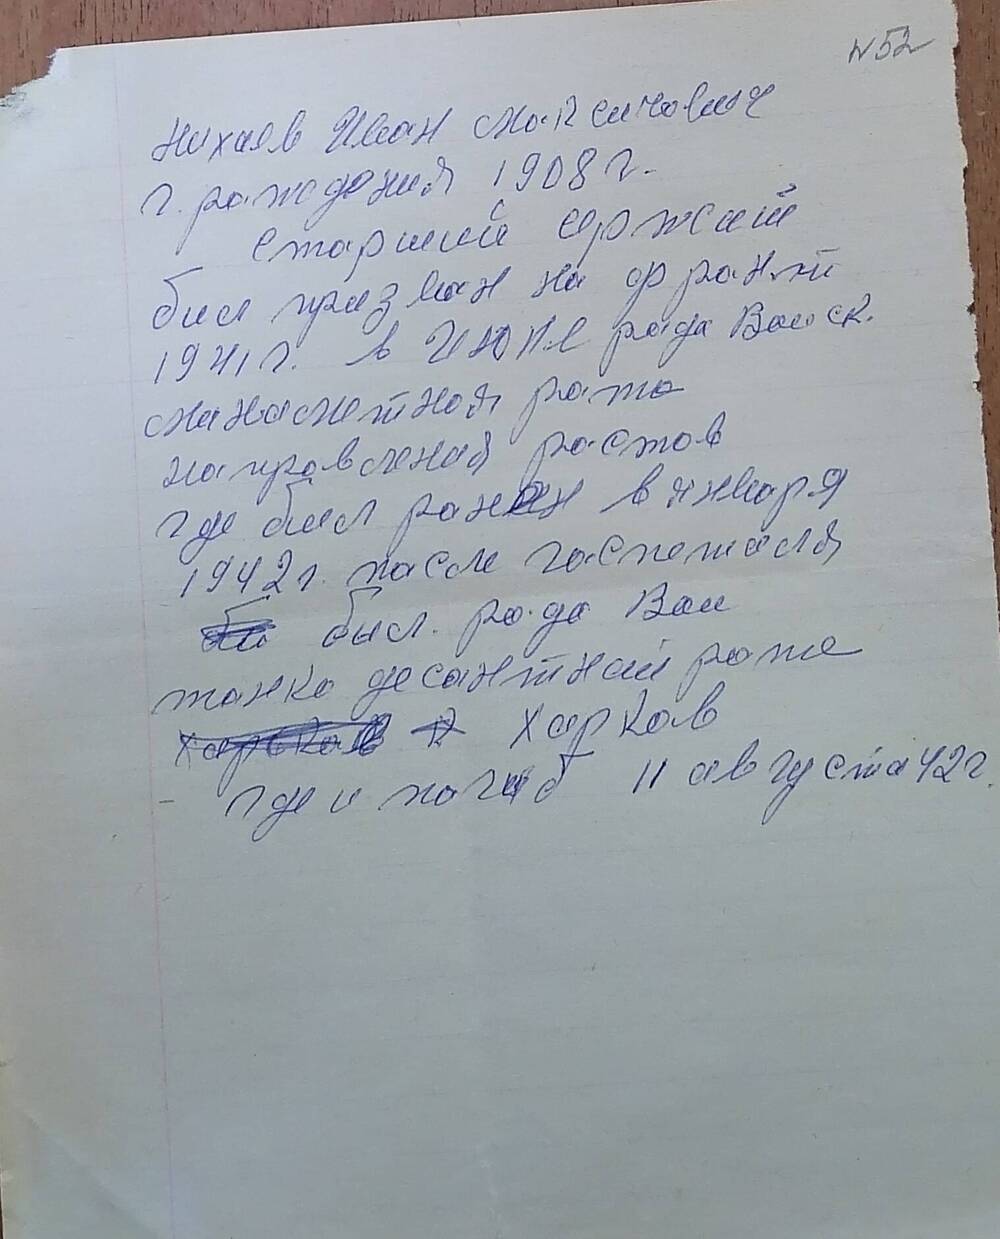 №52
Нихаев Иван Максимович
г. рождения 1908 г.
старший сржант
был призван на фронт
1941 г. в Июле рода Воиск.
Минометная рота
направления ростов
где был ранен в январе
1942 г. после госпеталя
был. рода Вои
танко десантный роте
Харков
где и погиб 11 августа 42 г